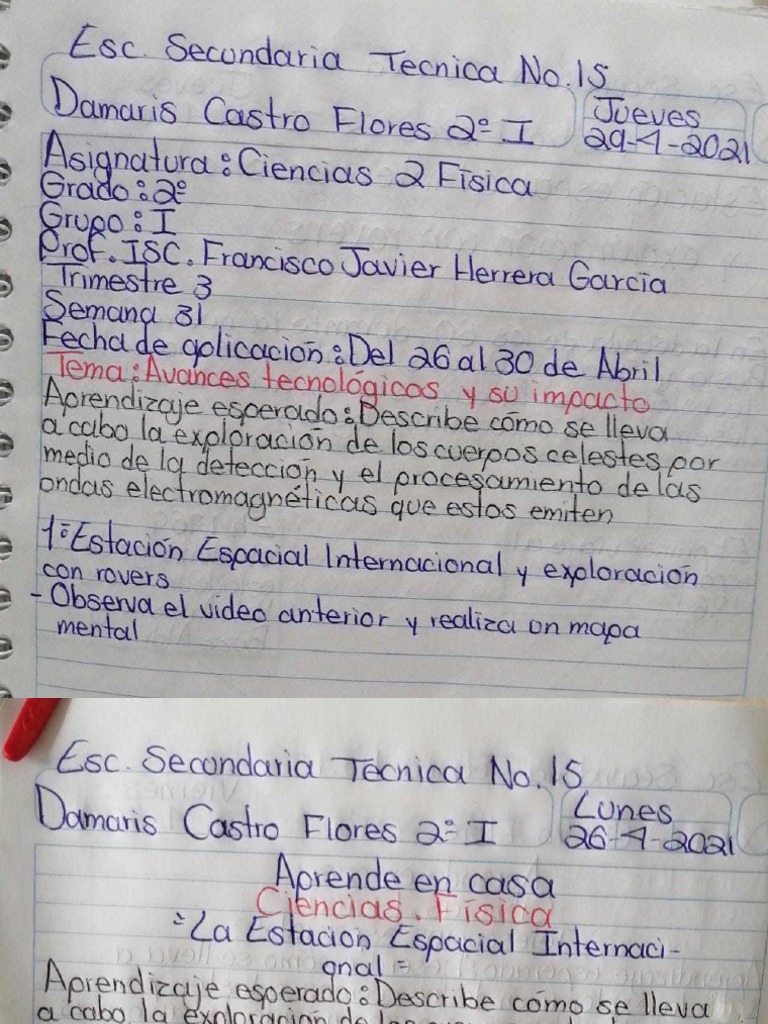 Esc. Secundaria Tecnica No.15
Damaris Castro Flores 2º I
Jueves
29-4-2021
Asignatura: Ciencias 2 Física
Grado: 2º
Grupo: I
Prof. ISC. Francisco Javier Herrera García
Trimestre 3
Semana 31
Fecha de aplicación: Del 26 al 30 de Abril
Tema: Avances tecnológicos y su impacto
Aprendizaje esperado: Describe cómo se lleva
a cabo la exploración de los cuerpos celestes por
medio de la detección y el procesamiento de las
ondas electromagnéticas que estos emiten
1:Estación Espacial Internacional y exploración
con rovers
- Observa el video anterior y realiza un mapa
mental
Esc. Secundaria Tecnica No.15
Damaris Castro Flores 2º I
Lunes
26-4-2021
Aprende en casa
Ciencias. Física
:La Estación Espacial Internaci-
onal:
Aprendizaje esperado: Describe cómo se lleva
a cabo la exploración de los